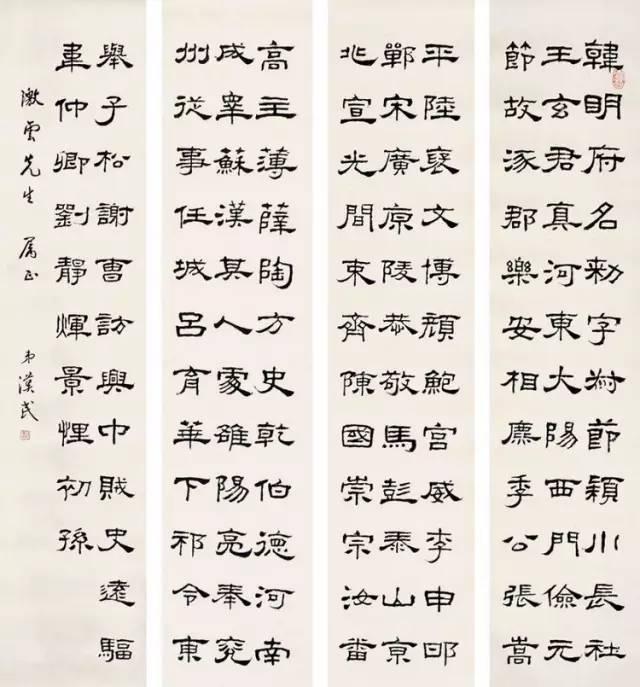 韓明府名勑字叔節穎川長社
王玄君真河東大陽西門儉元
節故涿郡樂安相廉季公張嵩
平陸襃文博頏鮑宮威李申
鄲宋廣原陵恭敬馬彭泰山京
北宣光間束齊陳國崇宗汝番
高主薄薛陶方史乾伯德河南
成睾蘇漢其人處雒陽亮奉兖
州從事任城呂育華下邳令東
舉子松謝曹訪興中賊史遠驅
韋仲卿劉靜煇景悝初孫
澂雲先生 属正
弟漢民